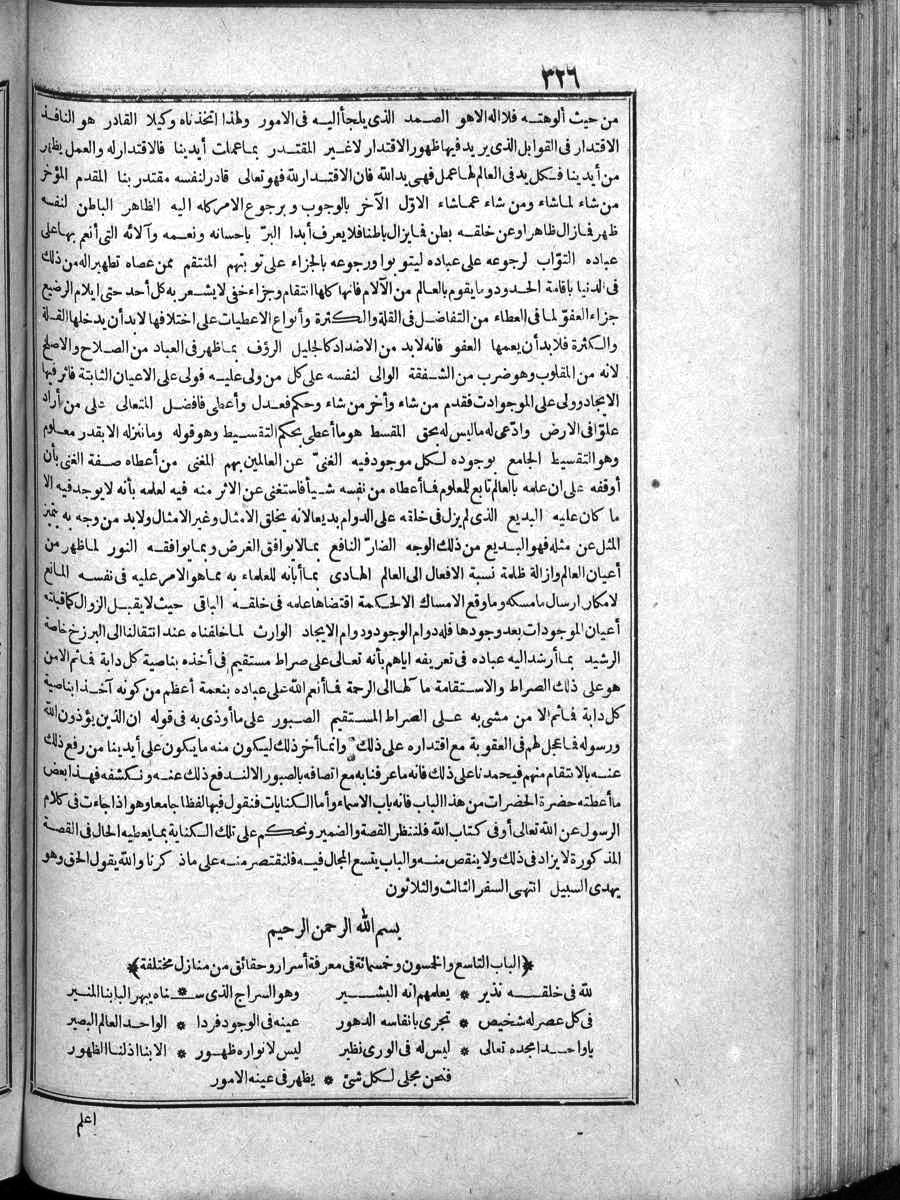 ٣٢٦
من حيث ألوهتــه فلا اله الا هو الصــمد الذى يلجأ اليــه فى الامور ولهذا اتخذناه وكيلا القادر هو النافذ
الاقتدار فى القوابل الذى يريد فيها ظهور الاقتدار لا غير المقتــدر بمـا عملت أيدينا فالاقتدار له والعمل يظهر
من أيدينا فكل يد فى العالم لها عمل فهى يد الله فان الاقتــدار لله فهو تعالى قادر لنفسه مقتدر بنا المقدم المؤخر
من شاء لما شاء ومن شاء عما شاء الاوّل الآخر بالوجوب وبرجوع الامر كله اليه الظاهر الباطن لنفسه
ظهر فما زال ظاهرا وعن خلقه بطن فما يزال باطنا فلا يعرف أبدا البرّ باحسانه ونعمه وآلائه التى أنعم بها على
عباده التوّاب لرجوعه على عباده ليتوبوا ورجوعه بالجزاء على توبتهم المنتقم ممن عصاه تطهيرا له من ذلك
فى الدنيا باقامة الحدود وما يقوم بالعالم من الآلام فانها كلها انتقام وجزاء خفى لا يشعر به كل أحد حتى ايلام الرضيع
جزاء العفوّ لما فى العطاء من التفاضل فى القلة والكثرة وأنواع الاعطيات على اختلافها لا بد أن يدخلها القلة
والكثرة فلا بد أن يعمها العفو فانه لا بد من الاضداد كالجليل الرؤف بما ظهر فى العباد من الصلاح والاصلح
لانه من المقلوب وهو ضرب من الشــفقة الوالى لنفسه على كل من ولى عليــه فولى على الاعيان الثابتة فاثر فيها
الايجاد وولى على الموجودات فقدم من شاء وأخر من شاء وحكم فعدل وأعطى فافضل المتعالى على من أراد
علوّا فى الارض وادّعى له ما ليس له بحق المقسط هو ما أعطى بحكم التقسيط وهو قوله وما ننزله الا بقدر معلوم
وهو التقسيط الجامع بوجوده لكل موجود فيه الغنىّ عن العالمين بهم المغنى من أعطاه صفة الغنى بأن
أوقفه على ان علمه بالعالم تابع للمعلوم فما أعطاه من نفسه شيأ فاستغنى عن الاثر منه فيه لعلمه بأنه لا يوجد فيه الا
ما كان عليه البديع الذى لم يزل فى خلقه على الدوام بديعا لانه يخلق الامثال وغير الامثال ولا بد من وجه به تميز
المثل عن مثله فهو البــديع من ذلك الوجه الضارّ النافع بما لا يوافق الغرض وبما يوافقه النور لما ظهر من
أعيان العالم وازالة ظلمة نسبة الافعال الى العالم الهادى بما أبانه للعلماء به مما هو الامر عليه فى نفسه المانع
لامكان ارسال ما مسكه وما وقع الامساك الا لحكمة اقتضاها علمه فى خلقه الباقى حيث لا يقبــل الزوال كما قبلته
أعيان الموجودات بعد وجودها فله دوام الوجود ودوام الايجاد الوارث لما خلفناه عند انتقالنا الى البرزخ خاصة
الرشيد بما أرشد اليه عباده فى تعريفه اياهم بأنه تعالى على صراط مستقيم فى أخذه بناصية كل دابة فما ثم الا من
هو على ذلك الصراط والاستقامة مآلها الى الرحمة فما أنعم الله على عباده بنعمة أعظم من كونه آخذا بناصية
كل دابة فما ثم الا من مشى به على الصراط المستقيم الصبور على ما أوذى به فى قوله ان الذين يؤذون الله
ورسوله فما عجل لهم فى العقوبة مع اقتداره على ذلك وانما أخر ذلك ليكون منه ما يكون على أيدينا من رفع ذلك
عنــه بالانتقام منهم فيحمدنا على ذلك فانه ما عرفنا به مع اتصافه بالصبور الا لندفع ذلك عنــه ونكشفه فهذا بعض
ما أعطته حضرة الحضرات من هذا الباب فانه باب الاسماء وأما الكنايات فنقول فيها لفظا جامعا وهو اذا جاءت فى كلام
الرسول عن الله تعالى أو فى كتاب الله فلننظر القصة والضمير ونحكم على تلك الكناية بما يعطيه الحال فى القصة
المذكورة لا يزاد فى ذلك ولا ينقص منــه والباب يتسع المجال فيــه فلنقتصر منــه على ما ذكرنا والله يقول الحق وهو
يهدى السبيل انتهى السفر الثالث والثلاثون
بسم الله الرحمن الرحيم
﴿الباب التاسع والخمسون وخمسمائة فى معرفة أسرار وحقائق من منازل مختلفة﴾
لله فى خلقــه نذير * يعلمهم انه البشــير وهو السراج الذى ســناه يبهر البابنا المنــير
فى كل عصر له شخيص * تجرى بانفاسه الدهور عينه فى الوجود فردا * الواحد العالم البصير
يا واحــدا مجده تعالى * ليس له فى الورى نظير ليس لانواره ظهــور * الا بنا اذ لنا الظهور
فنحن مجلى لكل شئ * يظهر فى عينه الامور
اعلم